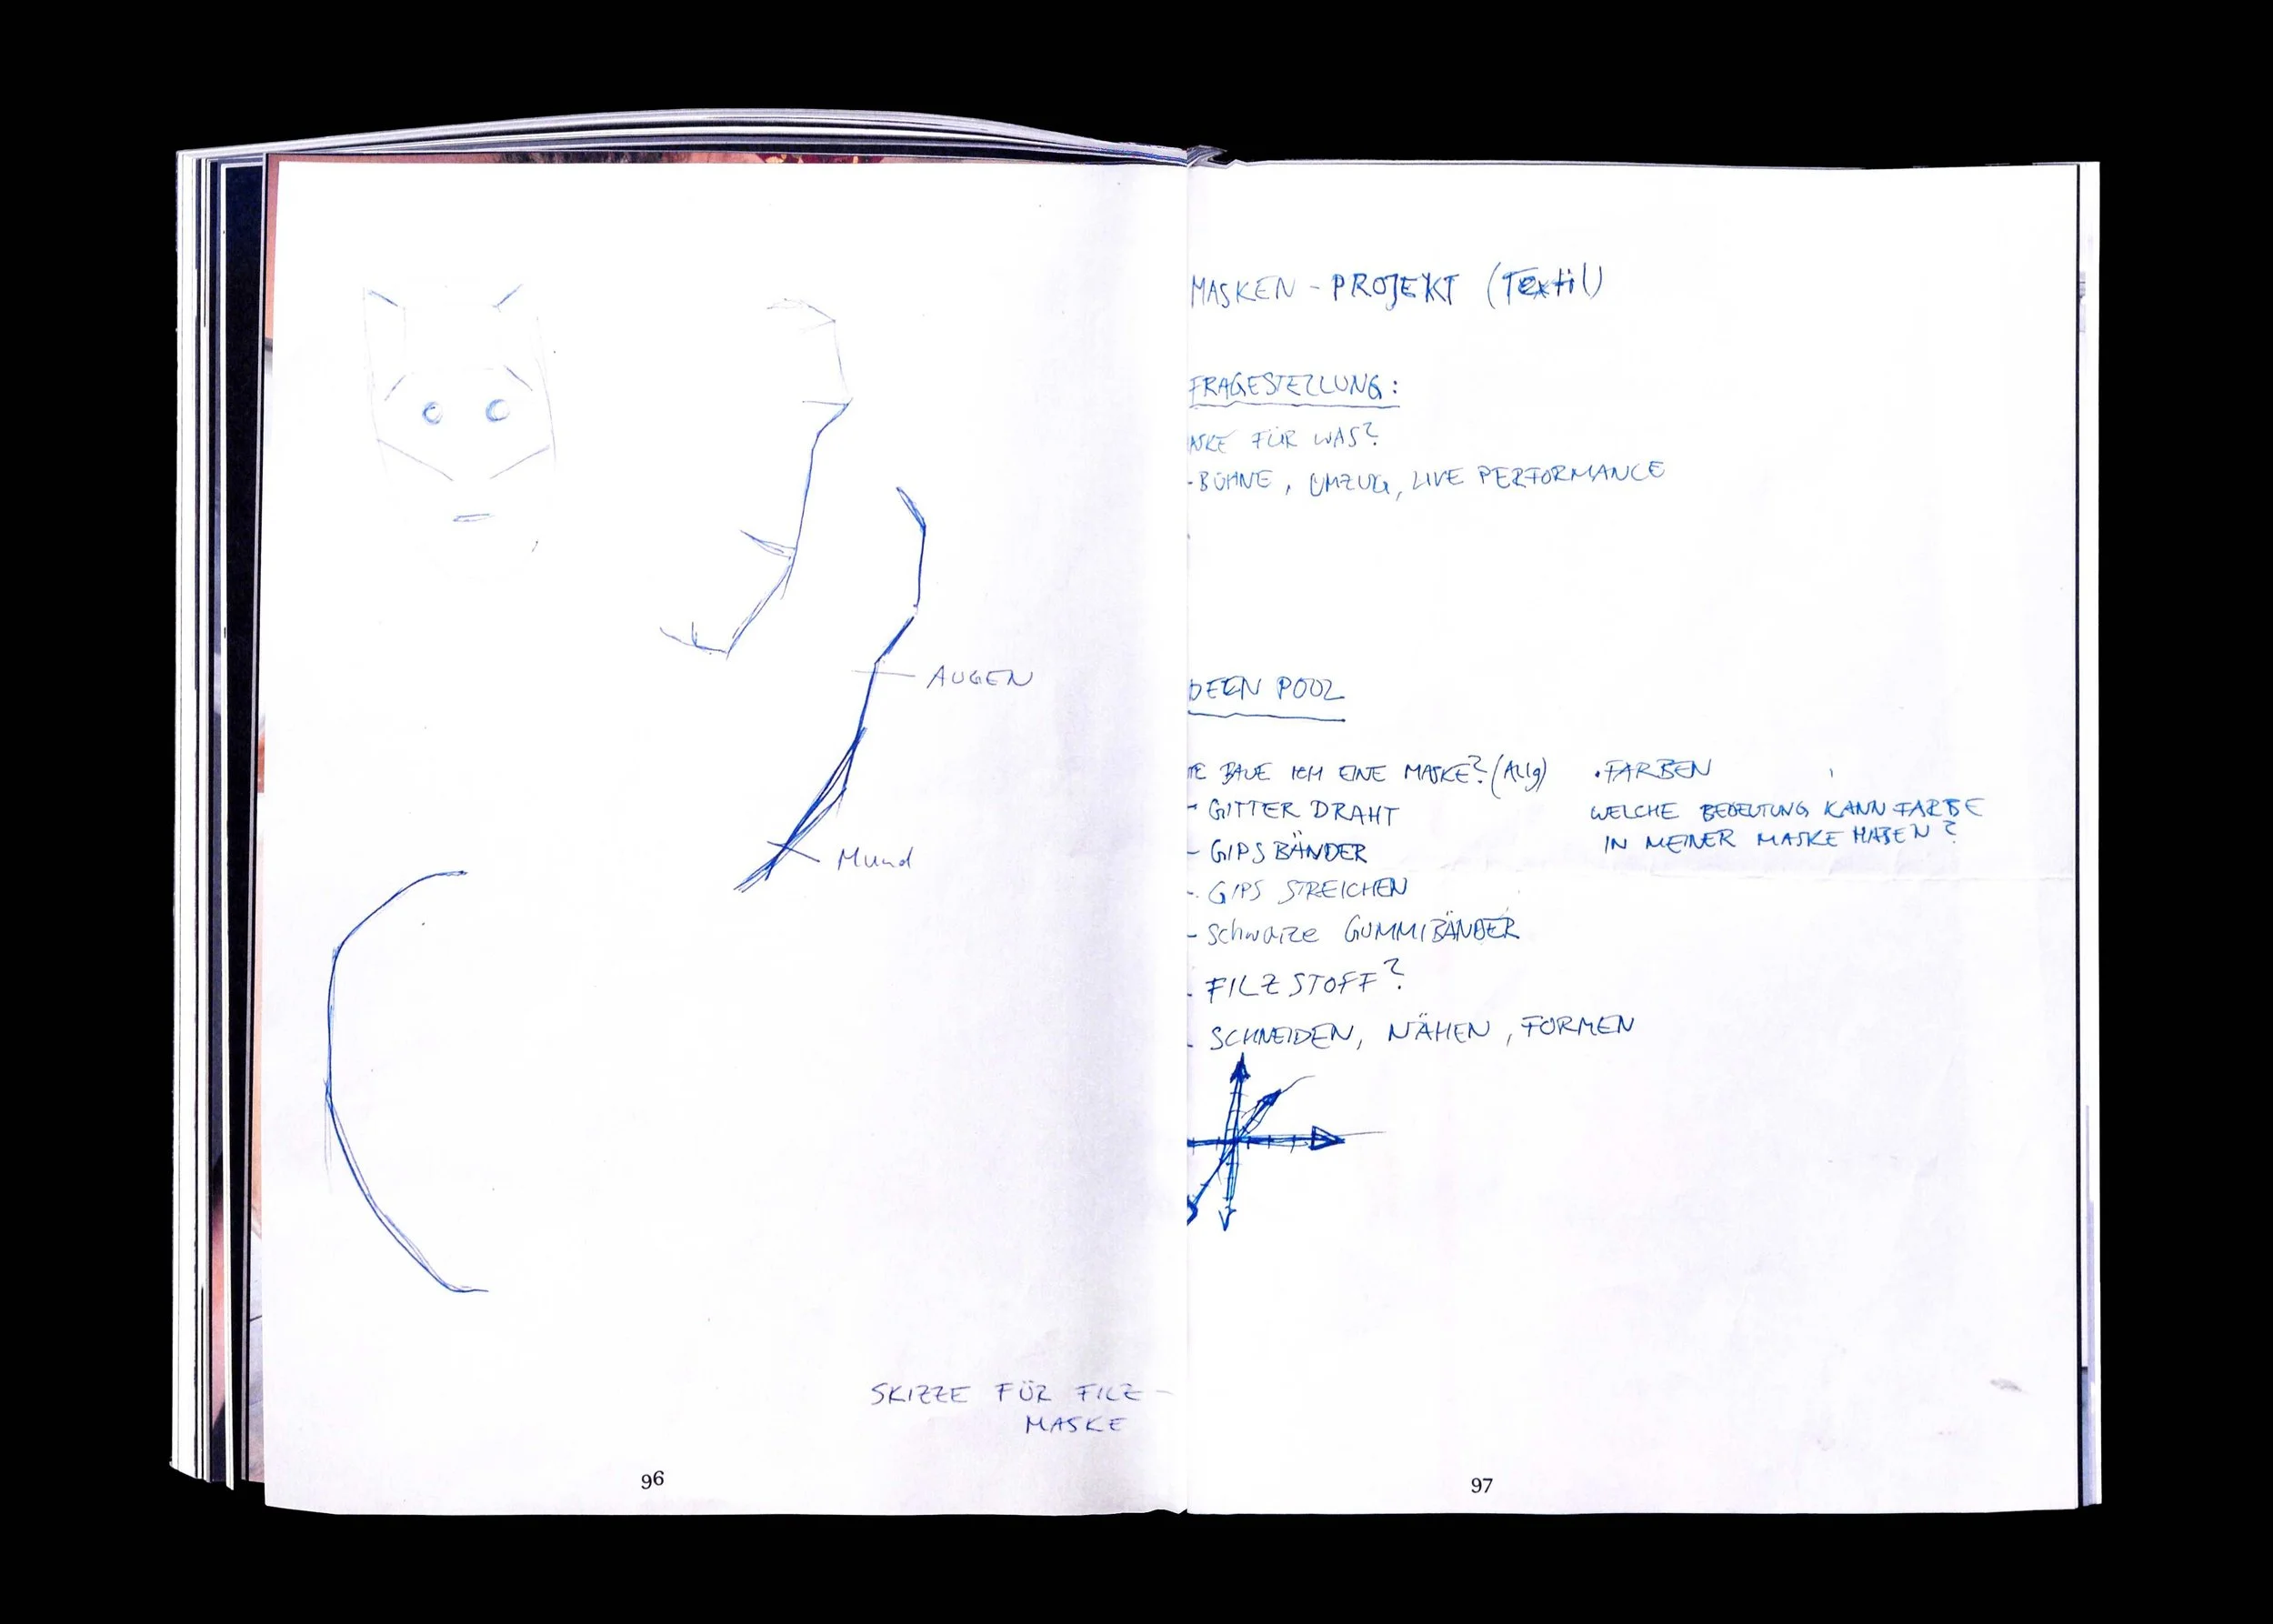 AUGEN
Mund
SKIZZE FÜR FILZ-
MASKE
96
MASKEN - PROJEKT (Textil)
FRAGESTELLUNG:
ASKE FÜR WAS?
- BÜHNE, UMZUG, LIVE PERFORMANCE
DEEN POOL
IE BAUE ICH EINE MASKE? (Allg)
- GITTER DRAHT
- GIPSBÄNDER
- GIPS STREICHEN
- Schwarze GUMMIBÄNDER
- FILZSTOFF?
- SCHNEIDEN, NÄHEN, FORMEN
• FARBEN
WELCHE BEDEUTUNG KANN FARBE
IN MEINER MASKE HABEN?
97